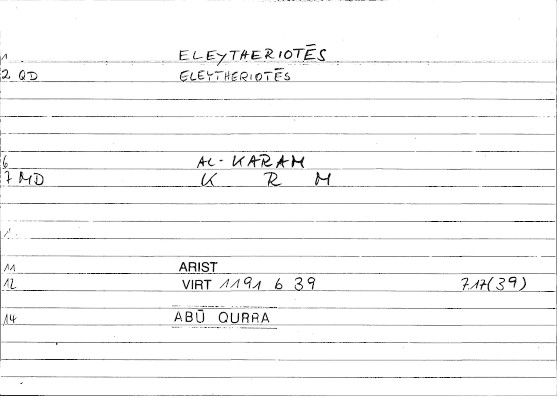 1 ELEYTHERIOTĒS
2 QD ELEYTHERIOTĒS
6 AL-KARAM
7 MD K R M
11 ARIST
12 VIRT 1191 b 39 717(39)
14 ABŪ QURRA